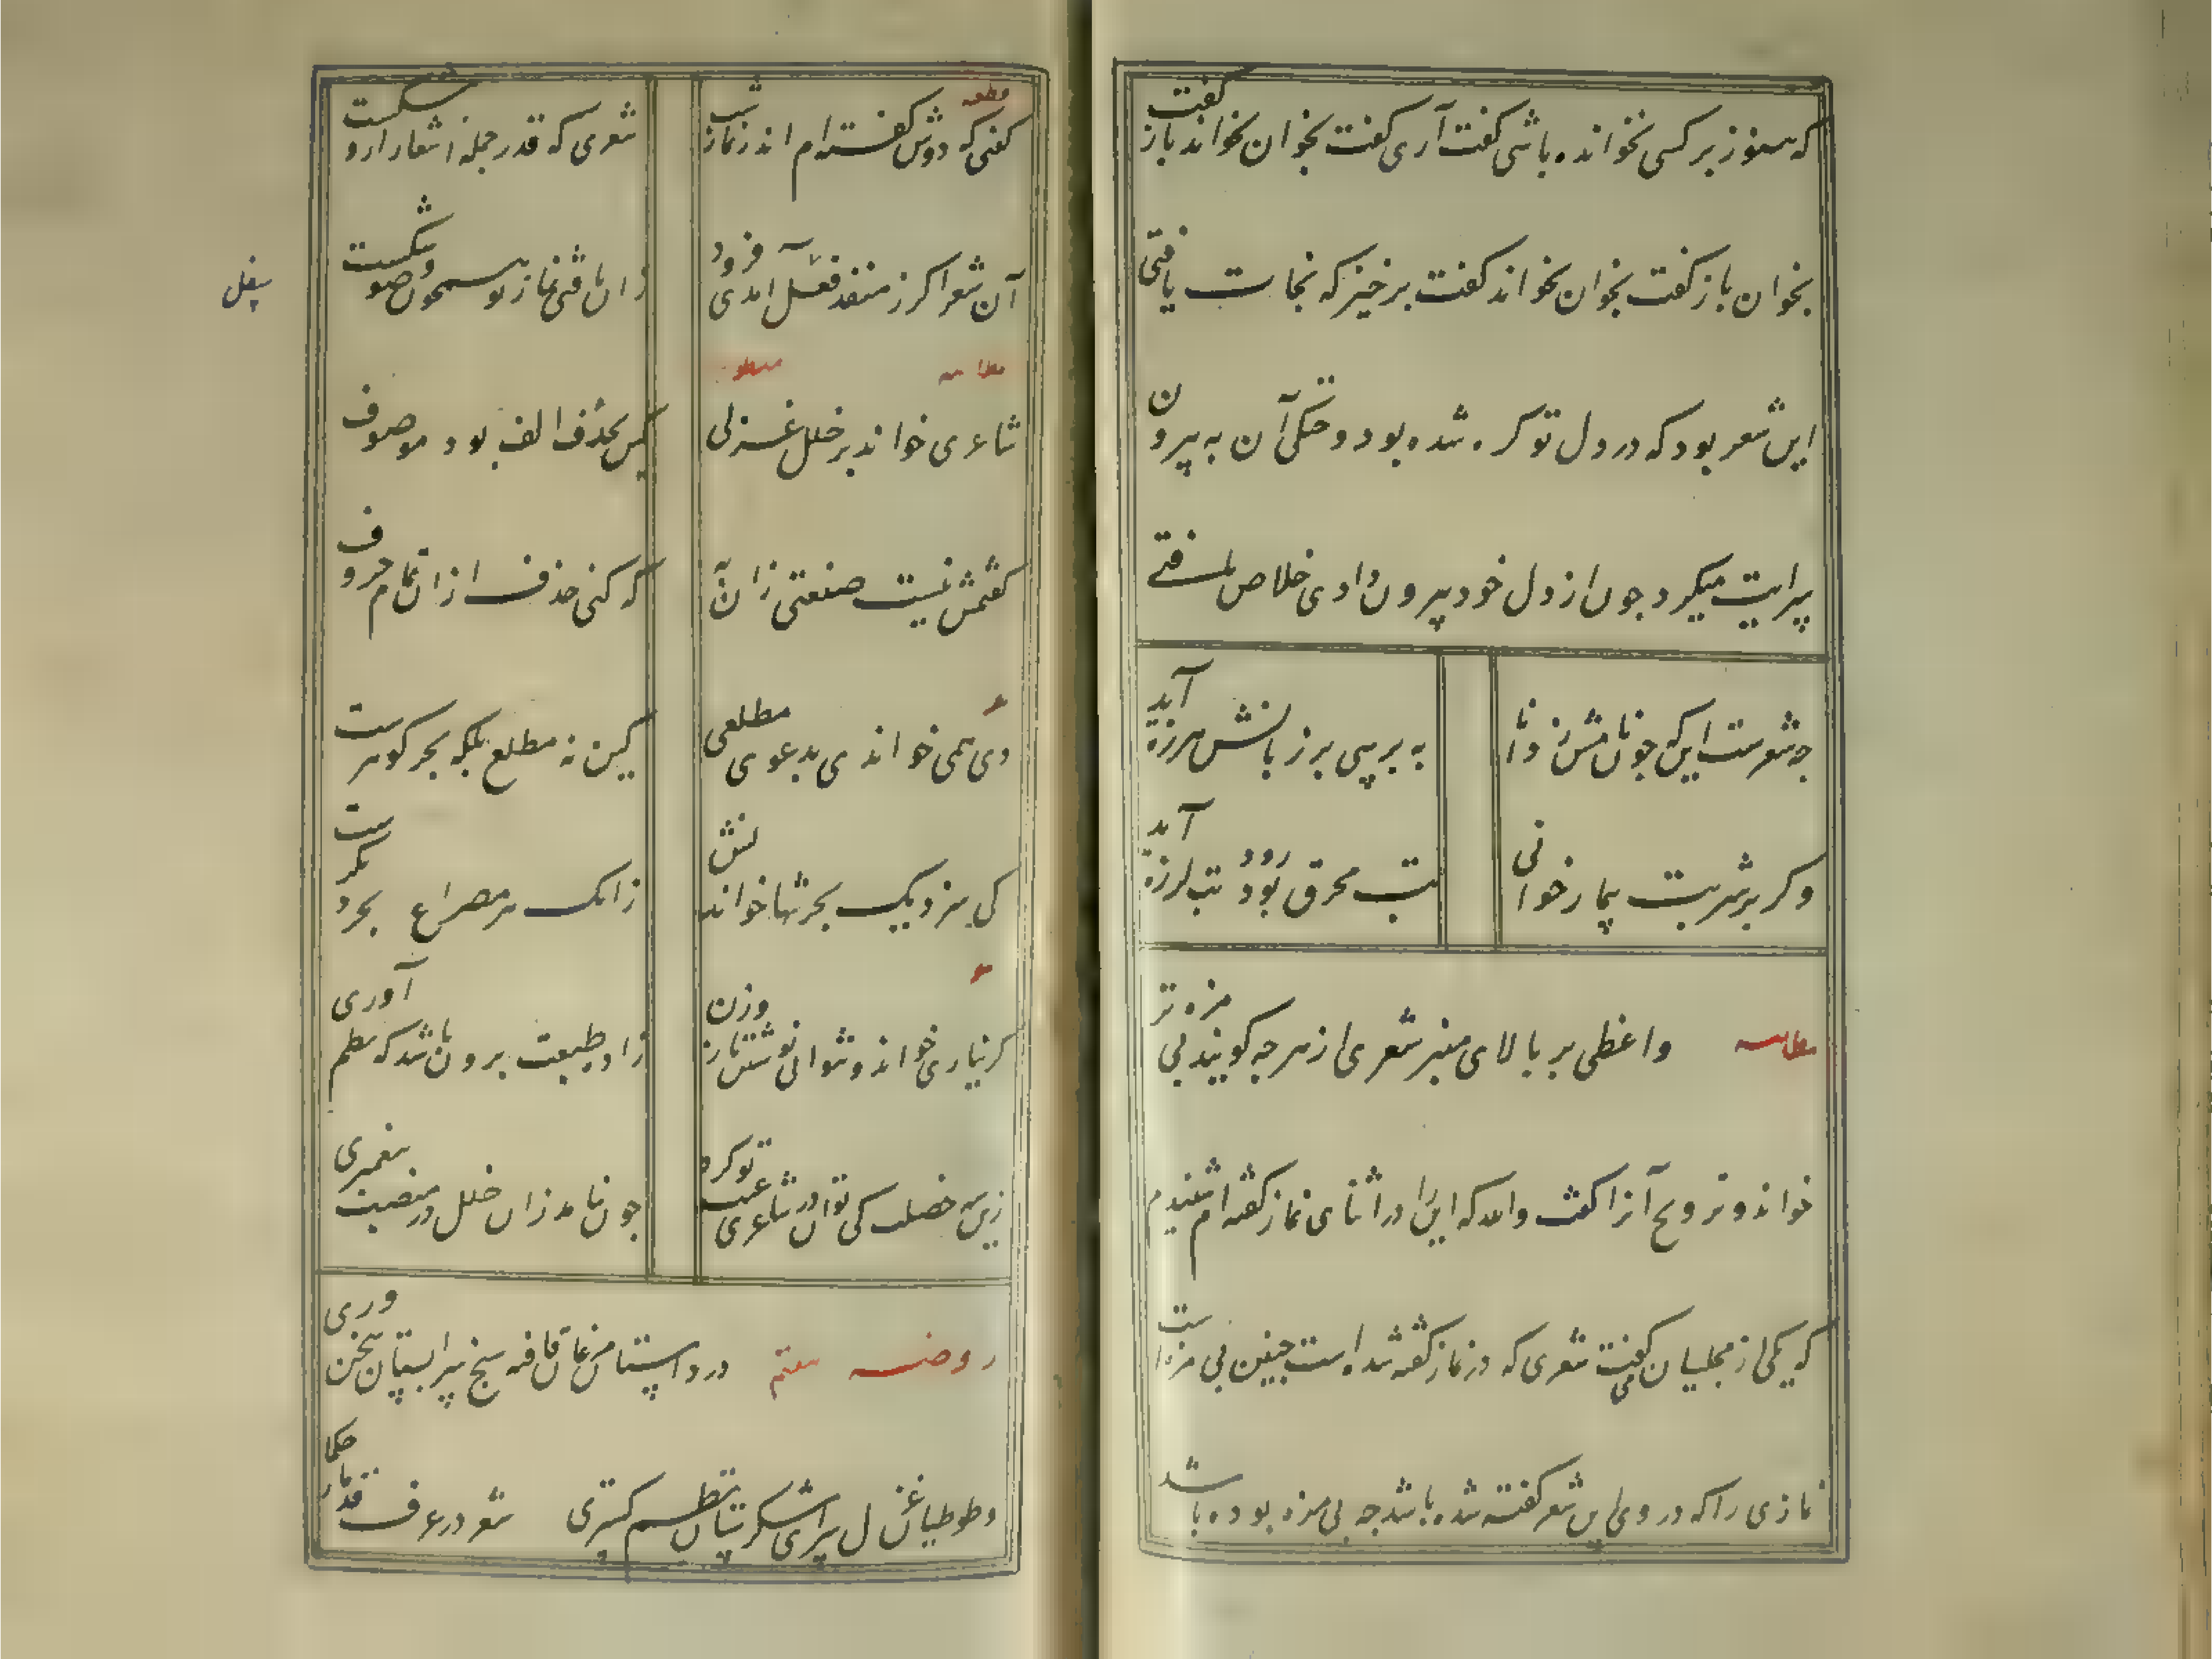 که هنوز بر کسی نخوانده باشی گفت آری گفت بخوان بخواند باز گفت
بخوان باز گفت بخوان بخواند گفت برخیز که نجات یافتی
این شعر بود که در دل تو گره شده بود و خشکی آن به بیرون
سرایت میکرد چون از دل خود بیرون دادی خلاص یافتی
چه شعرست این که چون نامش
به بر پی بر زبانش هرزه آید
وگر بر شربت بیمار خوانی
تب محرق رود تب لرزه آید
مطایبه واعظی بر بالای منبر شعری از هر چه گویند بی مزه تر
خواند و ترویج آنرا گفت والله که این را در اثنای نماز گفته ام شنیدم
که یکی از مجلسیان می گفت شعری که در نماز گفته شده است چنین بی مزه است
نمازی را که در وی این شعر گفته شده باشد چه بی مزه بوده باشد
قطعه
گفتی که دوش گفته ام اندر نماز شب
شعری که قدر جمله اشعار ازو شکست
آن شعر اگر ز منفذ سفل آمدی فرود
زان یافتی نماز تو همچون وضو شکست
سفل
مطایبه منظومه
شاعری خواند پر خلل غزلی
کین بحذف الف بود موصوف
گفتمش نیست صنعتی زان به
که کنی حذف از ان تمام حروف
دی همی خواندی بدعوی مطلعی
کین نه مطلع بلکه بحر گوهرست
کی بنزدیک بحر شناس خوانندش
زانک هر مصراع بحر دیگرست
گر نیاری خواند و نتوانی نوشتن وزن
زاد طبیعت برون باشد که نظم آوری
زین سه خصلت کی توان در شاعری عیب تو کرد
چون نامد زان خلل در منصب پیغمبری
روضه هفتم در داستان مرغان قافیه سنج سرابستان سخن وری
و طوطیان غزل سرای شکرستان نظم گستری شعر در عرف قدمای حکما